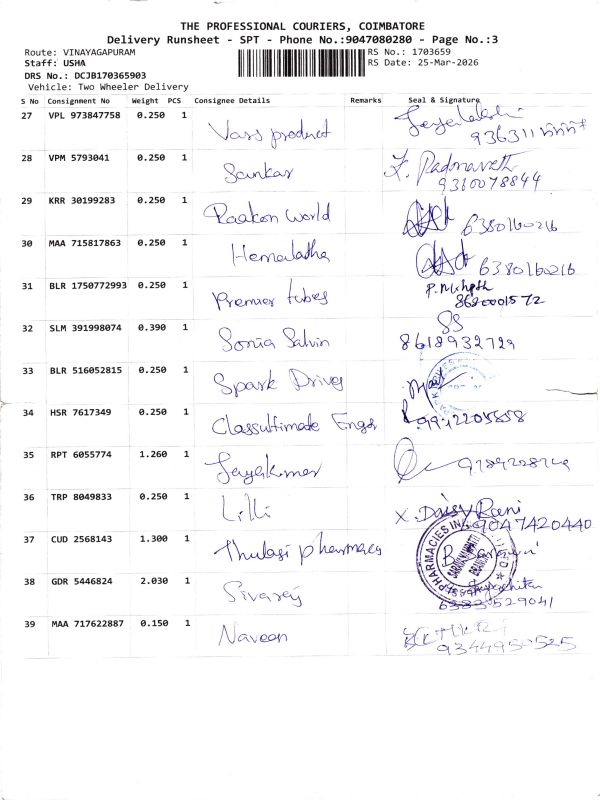 THE PROFESSIONAL COURIERS, COIMBATORE
Delivery Runsheet - SPT - Phone No.:9047080280 - Page No.:3
Route: VINAYAGAPURAM RS No.: 1703659
Staff: USHA RS Date: 25-Mar-2026
DRS No.: DCJB170365903
Vehicle: Two Wheeler Delivery
S No Consignment No Weight PCS Consignee Details Remarks Seal & Signature
27 VPL 973847758 0.250 1 Vars product
28 VPM 5793041 0.250 1 Sankar Z. Padmavathi
9310078844
29 KRR 30199283 0.250 1 Raakon World 6380160216
30 MAA 715817863 0.250 1 Hemalatha 6380160216
31 BLR 1750772993 0.250 1 Premier tubes
8680001572
32 SLM 391998074 0.390 1 Sonia Salvin SS
8618932729
33 BLR 516052815 0.250 1 Spark Drives
34 HSR 7617349 0.250 1 Classultimate Engg
35 RPT 6055774 1.260 1 Jayakumar
36 TRP 8049833 0.250 1 Lilli X. Daisy Rani
9047420440
37 CUD 2568143 1.300 1 Thulasi pharmacy
38 GDR 5446824 2.030 1 Sivaraj
6383529041
39 MAA 717622887 0.150 1 Naveen
9344950525